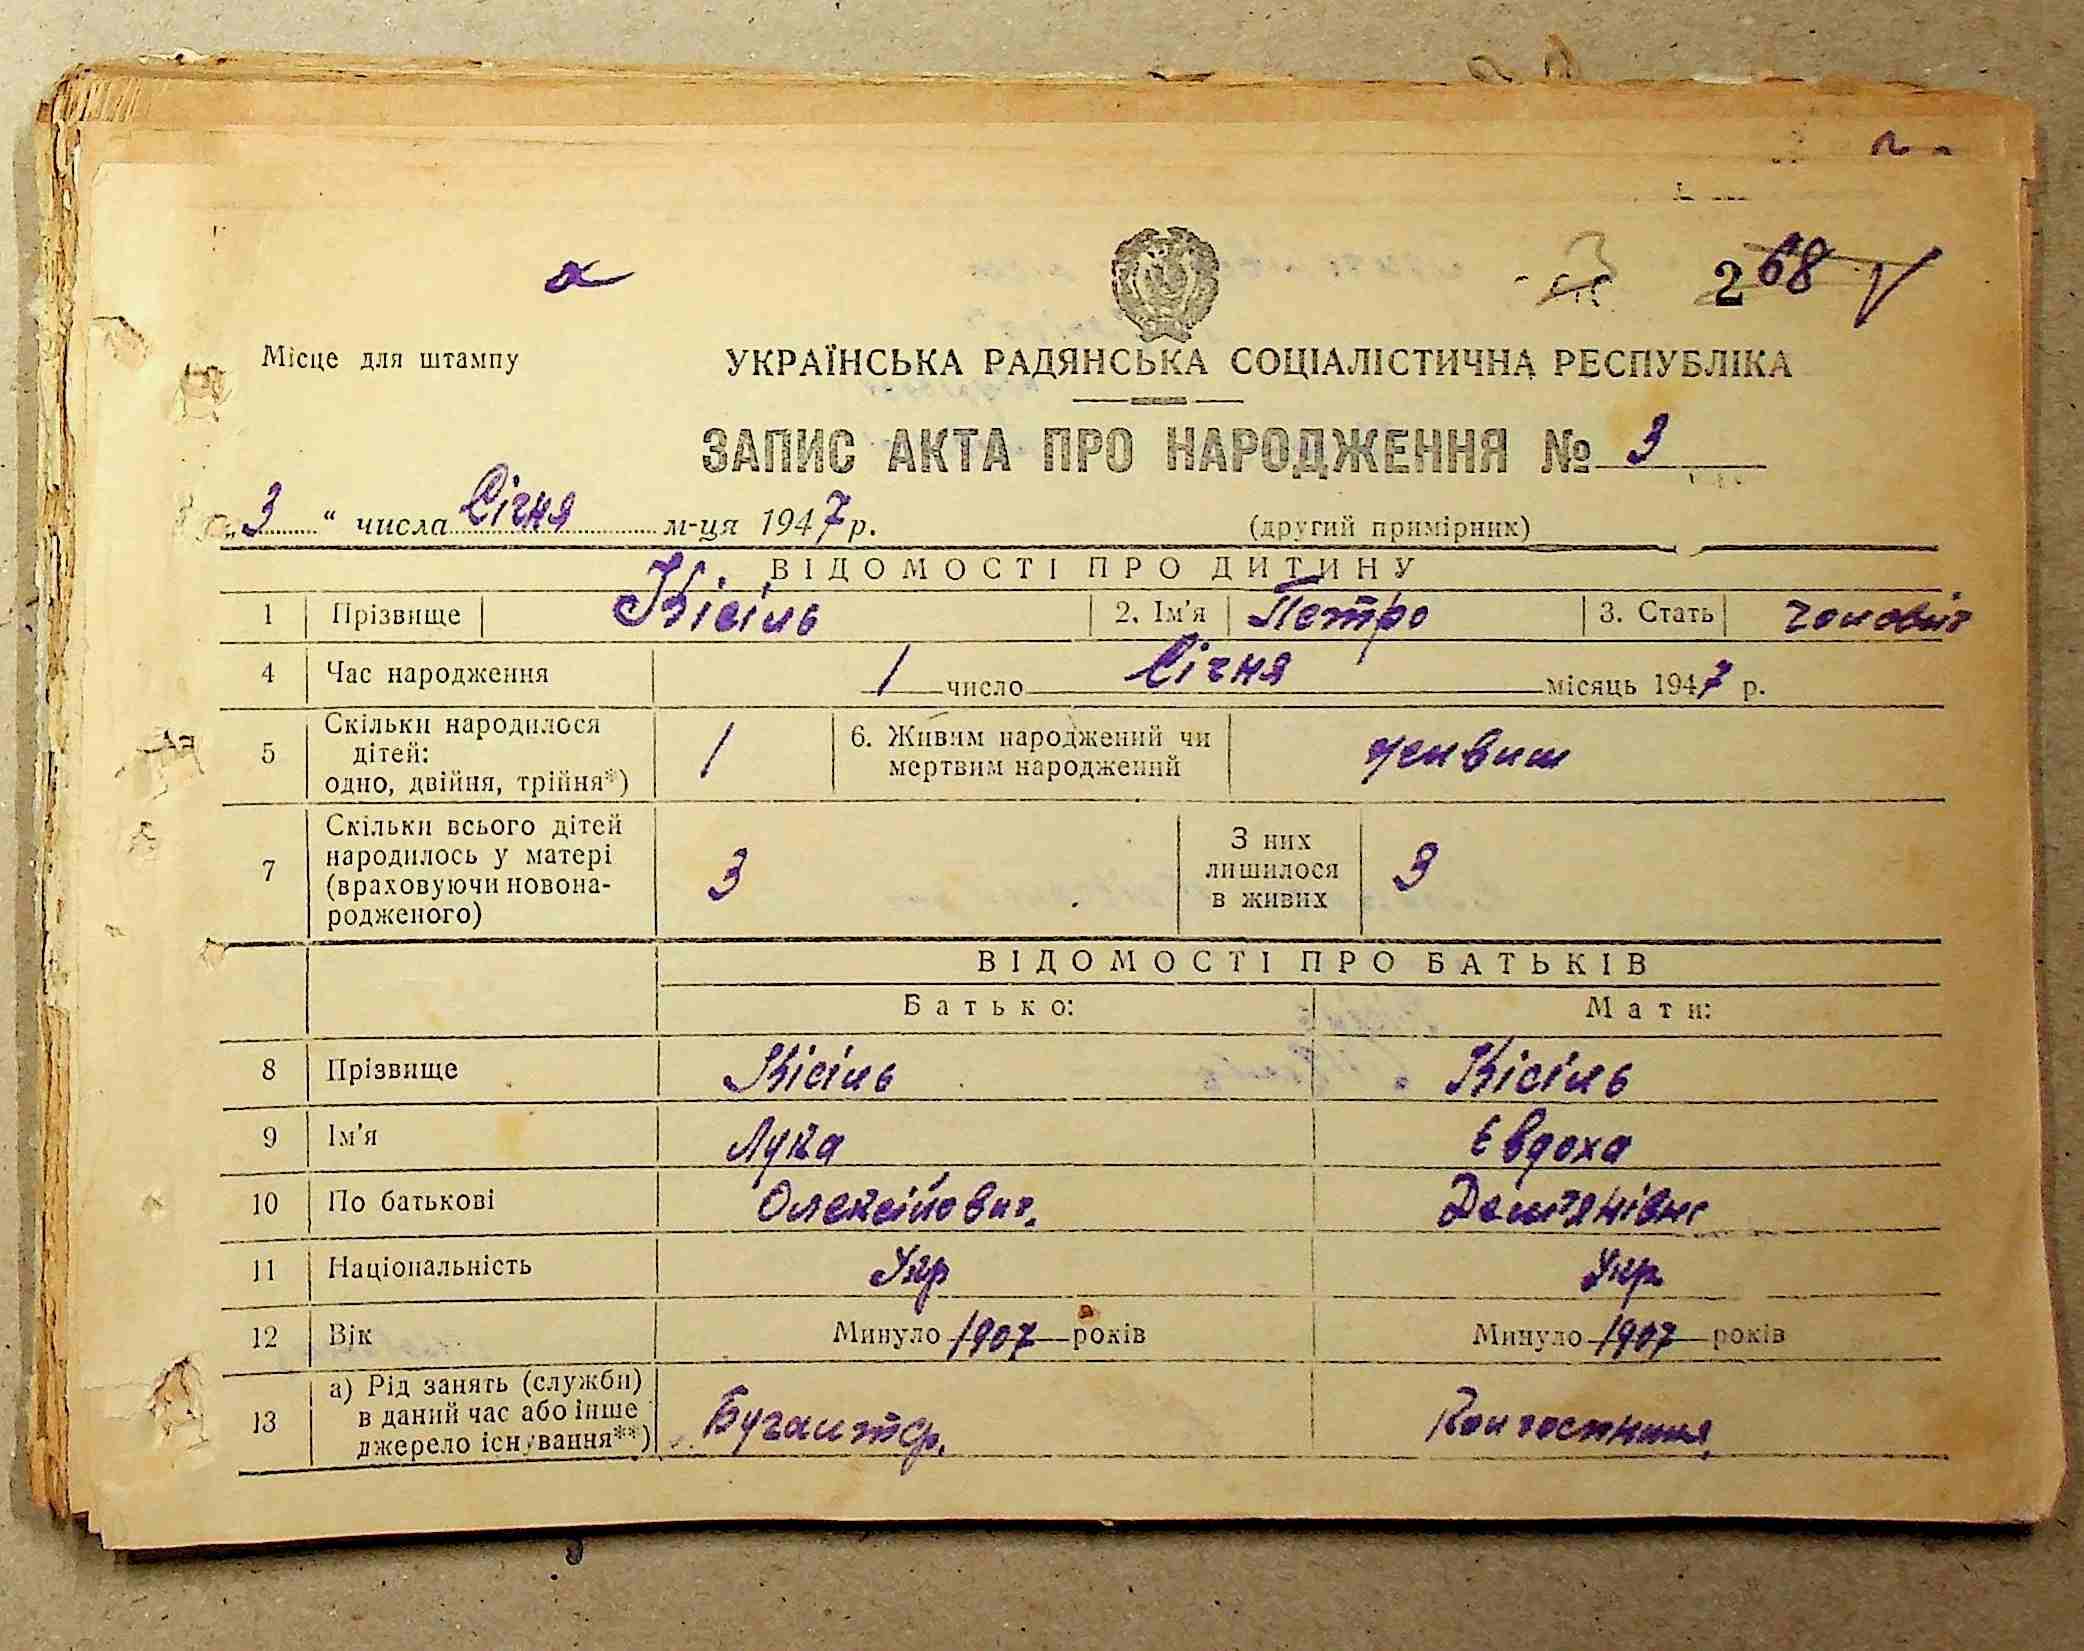 268
Місце для штампу
УКРАЇНСЬКА РАДЯНСЬКА СОЦІАЛІСТИЧНА РЕСПУБЛІКА
ЗАПИС АКТА ПРО НАРОДЖЕННЯ № 3
„3“ числа Січня м-ця 1947 р. (другий примірник)
ВІДОМОСТІ ПРО ДИТИНУ
1 Прізвище Кісіль 2. Ім'я Петро 3. Стать чоловіч
4 Час народження 1 число Січня місяць 1947 р.
5 Скільки народилося дітей: одно, двійня, трійня*) 1 6. Живим народжений чи мертвим народжений живим
7 Скільки всього дітей народилось у матері (враховуючи новонародженого) 3 З них лишилося в живих 3
ВІДОМОСТІ ПРО БАТЬКІВ
Батько: Мати:
8 Прізвище Кісіль Кісіль
9 Ім'я Лука Євдоха
10 По батькові Олексійович. Дем'янівна
11 Національність Укр Укр
12 Вік Минуло 1907 років Минуло 1907 років
13 а) Рід занять (служби) в даний час або інше джерело існування**) Бугалтер. Колгоспниця